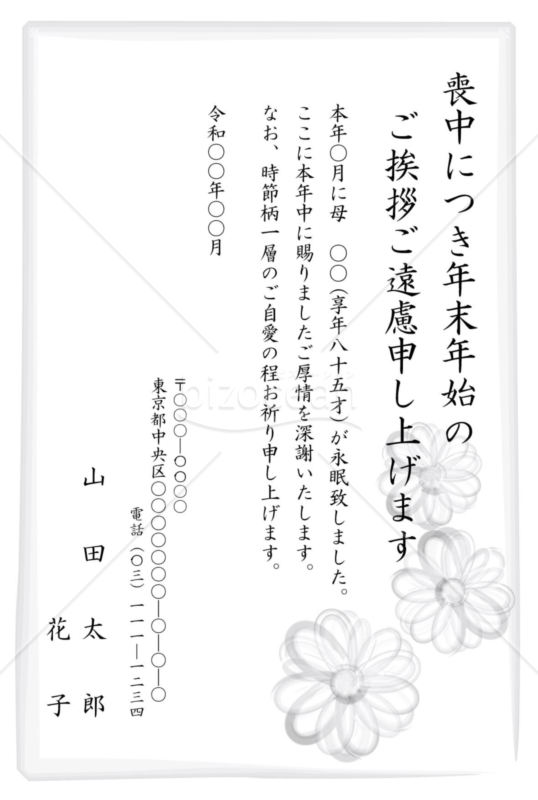 喪中につき年末年始の
ご挨拶ご遠慮申し上げます
本年〇月に母　〇〇(享年八十五才)が永眠致しました。
ここに本年中に賜りましたご厚情を深謝いたします。
なお、時節柄一層のご自愛の程お祈り申し上げます。
令和〇〇年〇〇月
〒〇〇〇―〇〇〇〇
東京都中央区〇〇〇〇〇〇〇―〇―〇―〇
電話(〇三)一一一―一二三四
山田太郎
花子
bizocean